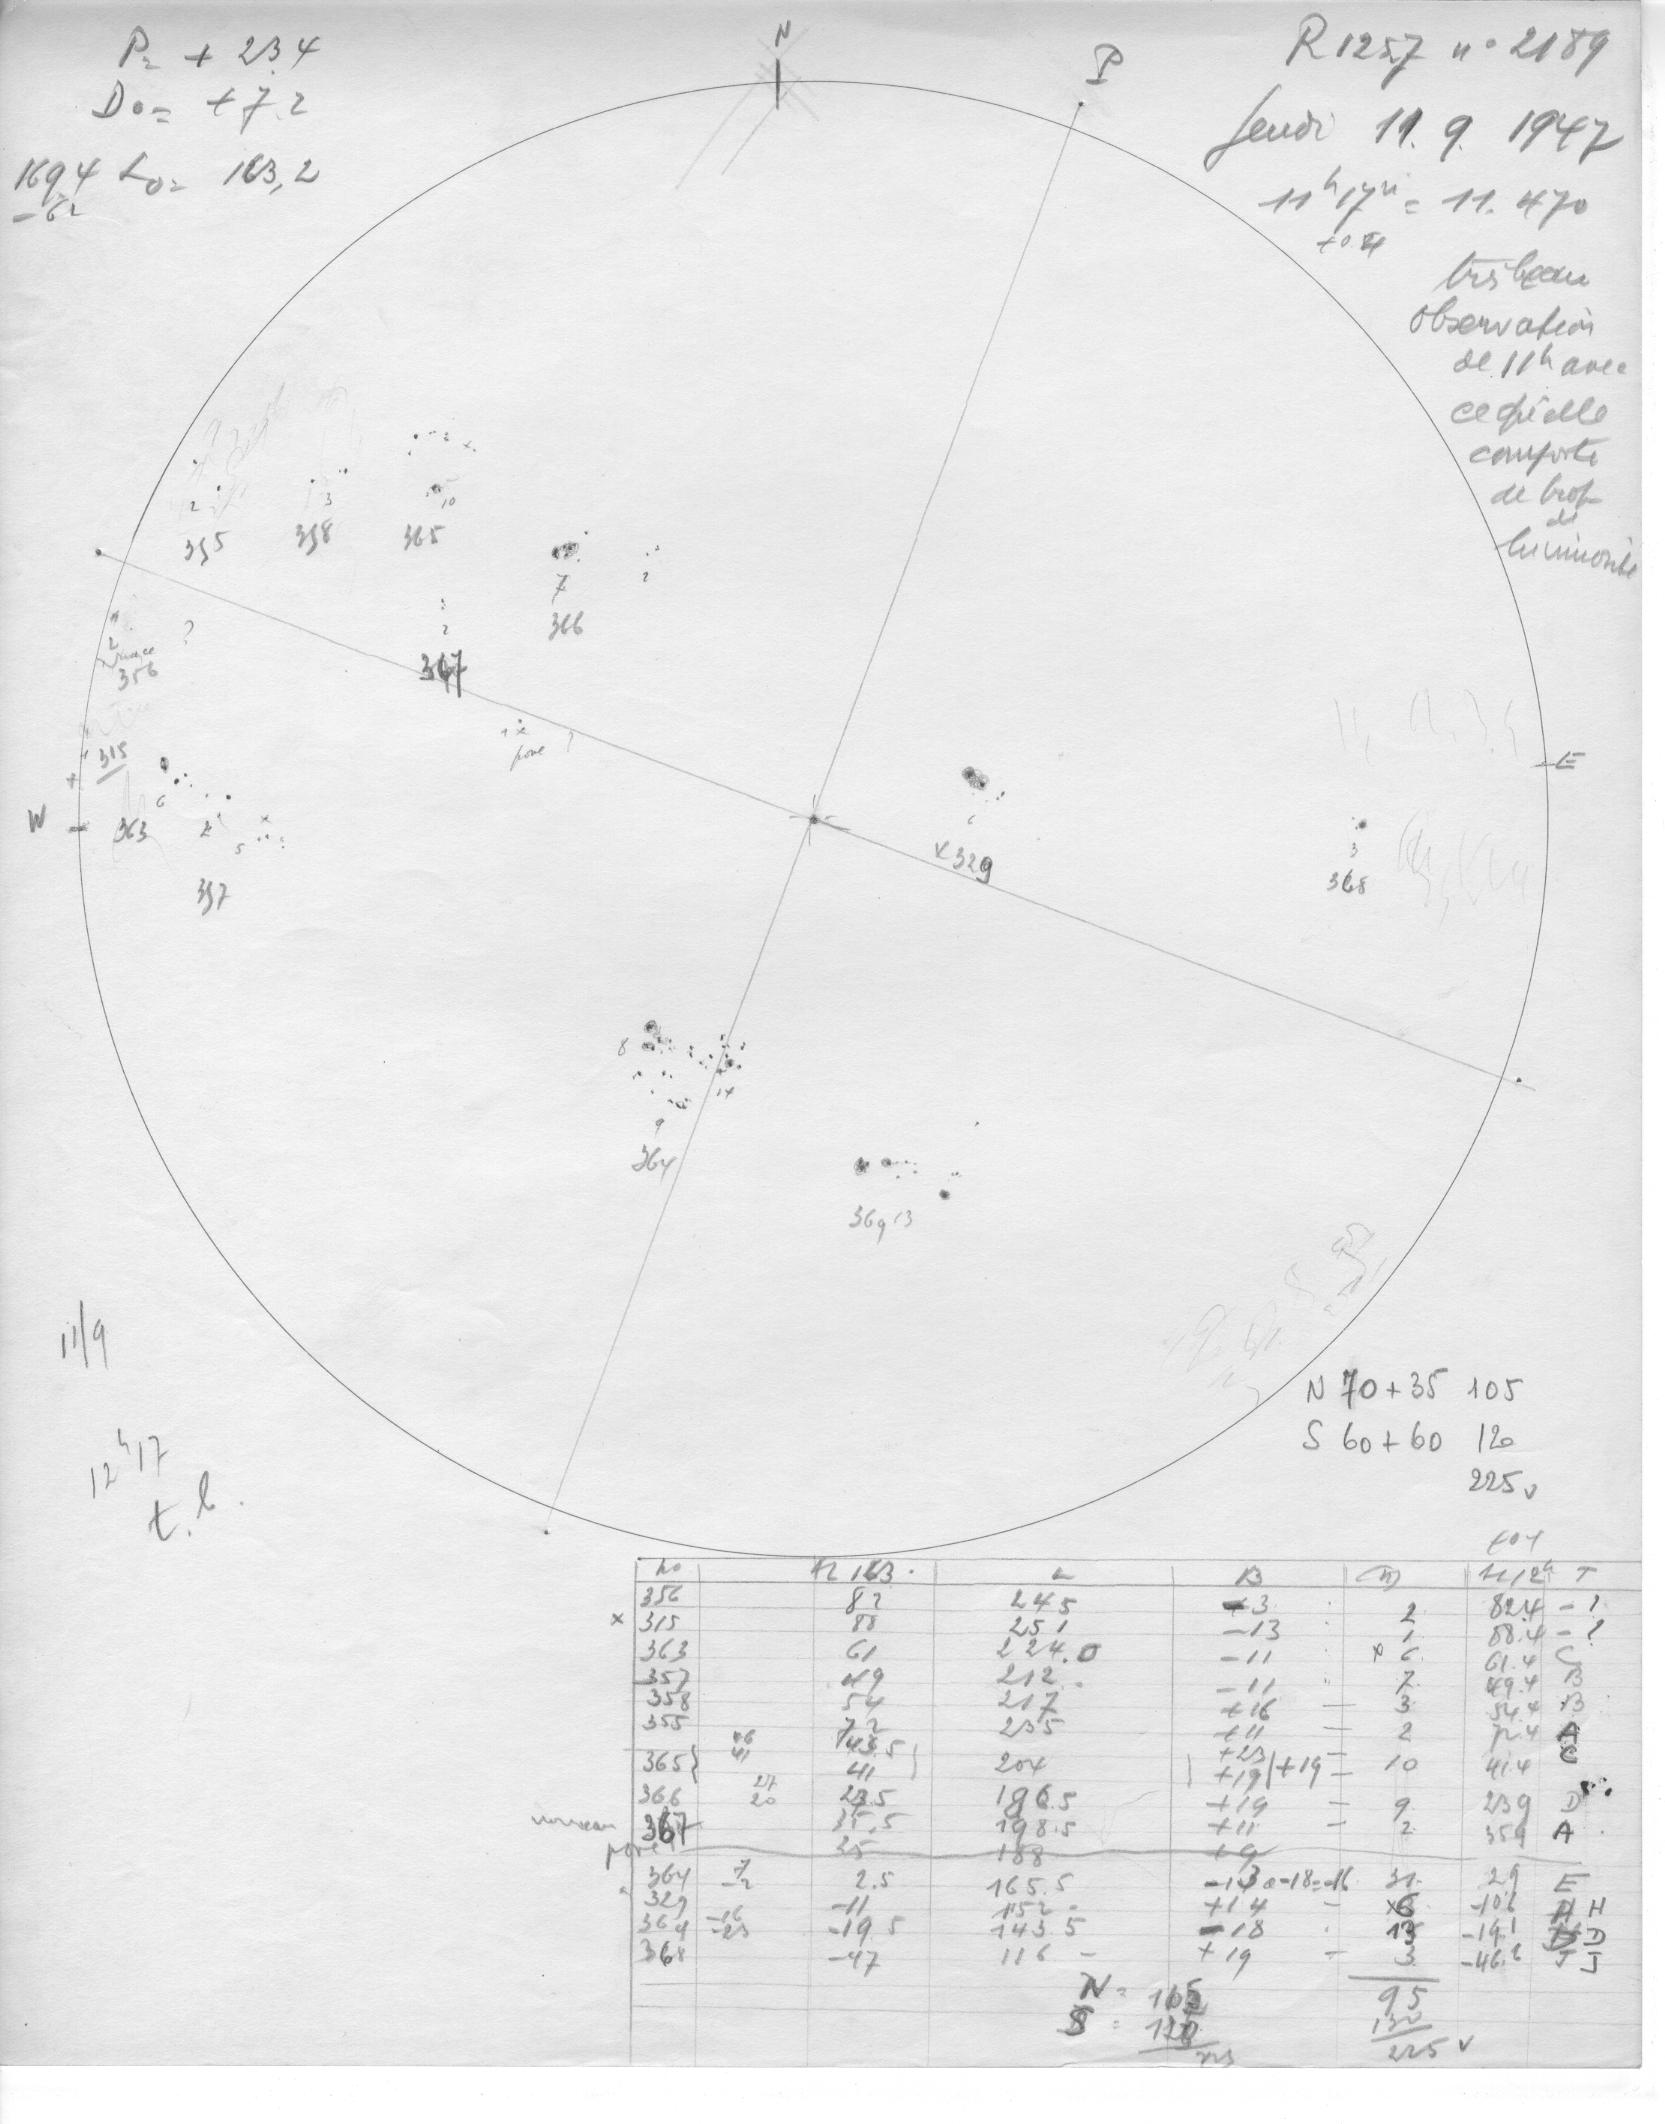 P= + 23.4
D0= +7.2
169.4 L0= 163,2
-62
N
P
R1257 n° 2189
Jeudi 11. 9. 1947
11h17m = 11.470
+0.4
très beau
observation
de 11h avec
ce qu'elle
comporte
de trop
de
luminosité
2
355
3
358
10
365
7
366
2
2
367
2
?
356
315
1
pore ?
W
363
6
2
5
357
E
6
x 329
3
368
8
14
9
364
369 13
11/9
12h17
t. b.
N 70+35 105
S 60+60 120
225 v
+04
No R 163. L B 11/12h T
356 82 245 -3 2 82.4 - ?
x 315 88 251 -13 1 88.4 - ?
363 61 224.0 -11 x 6 61.4 C
357 49 212 -11 7 49.4 B
358 54 217 +16 - 3 54.4 B
355 72 235 +11 - 2 72.4 A
46 43.5 +23
365 } 41 41 } 204 } +19 | +19 - 10 41.4 C
366 27 20 23.5 186.5 +19 - 9 239 D
nouveau 367 35,5 198.5 +11 - 2 359 A
pore 25 188 +9
364 7 -2 2.5 165.5 -13 a -18=-16 31 29 E
329 -11 152 - +14 - x6 -10.6 H H
369 -16 -23 -19.5 143.5 -18 13 -19.1 D D
368 -47 116 - +19 - 3 -46.6 J J
N = 105 95
S = 120 130
225 225 v